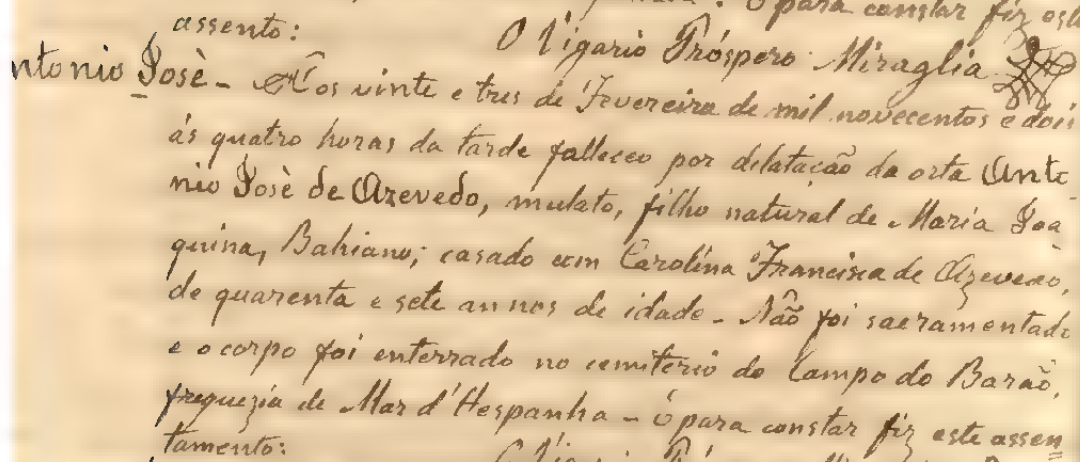 para constar fiz este
assento:
O Vigario Próspero Miraglia
ntonio José - Aos vinte e tres de Fevereiro de mil novecentos e dois
ás quatro horas da tarde falleceo por dilatação da orta Anto
nio José de Azevedo, mulato, filho natural de Maria Joa
quina, Bahiano; casado com Carolina Francisca de Azevedo,
de quarenta e sete annos de idade - Não foi sacramentado
e o corpo foi enterrado no cemiterio do Campo do Barão,
freguezia de Mar d'Hespanha - É para constar fiz este assen
tamento:
O Vigario